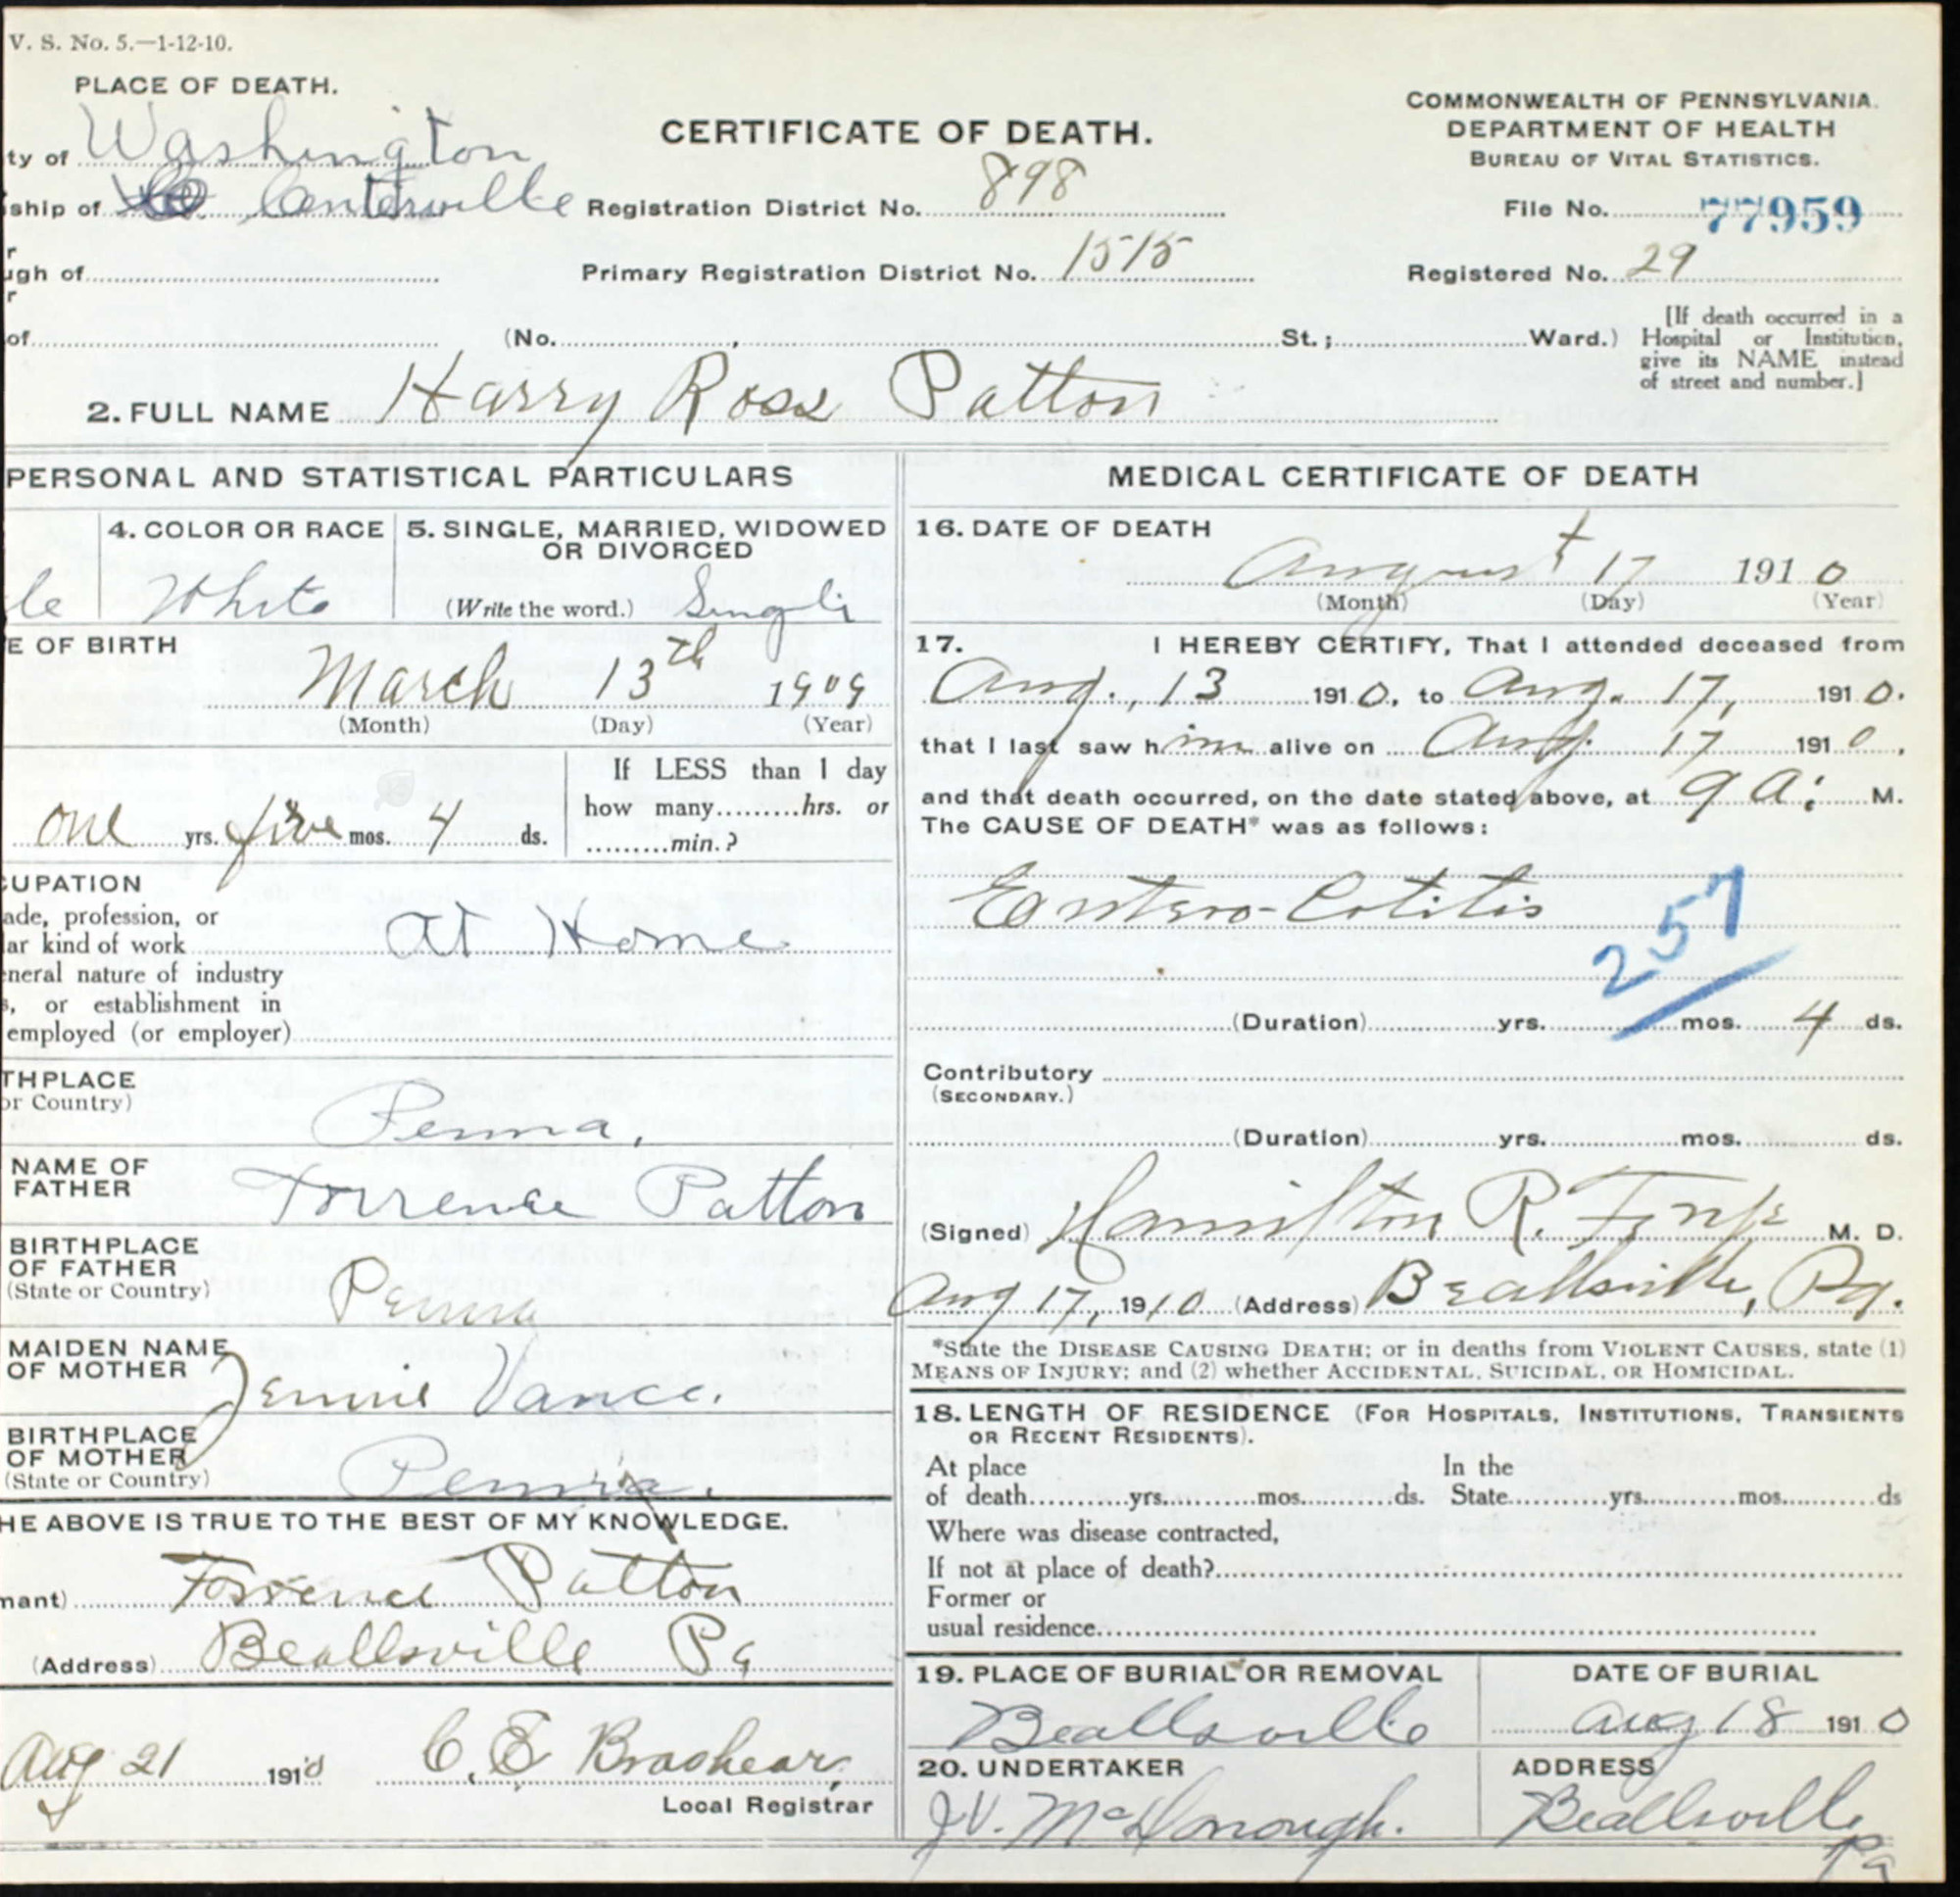 V. S. No. 5.—1-12-10.
PLACE OF DEATH.
CERTIFICATE OF DEATH.
COMMONWEALTH OF PENNSYLVANIA.
DEPARTMENT OF HEALTH
BUREAU OF VITAL STATISTICS.
ty of Washington
ship of Centerville
Registration District No. 898
File No. 77959
r
ugh of
Primary Registration District No. 1515
Registered No. 29
r
of (No. , St.; Ward.)
[If death occurred in a
Hospital or Institution,
give its NAME instead
of street and number.]
2. FULL NAME Harry Ross Patton
PERSONAL AND STATISTICAL PARTICULARS
le
4. COLOR OR RACE
White
5. SINGLE, MARRIED, WIDOWED
OR DIVORCED
(Write the word.) Singli
E OF BIRTH
March 13th 1909
(Month) (Day) (Year)
one yrs. five mos. 4 ds.
If LESS than 1 day
how many hrs. or
min.?
CUPATION
ade, profession, or
lar kind of work
At Home
eneral nature of industry
s, or establishment in
employed (or employer)
THPLACE
or Country)
Penna.
NAME OF
FATHER
Torrence Patton
BIRTHPLACE
OF FATHER
(State or Country)
Penna
MAIDEN NAME
OF MOTHER
Jennie Vance.
BIRTHPLACE
OF MOTHER
(State or Country)
Penna.
HE ABOVE IS TRUE TO THE BEST OF MY KNOWLEDGE.
mant) Torrence Patton
(Address) Beallsville Pa
Aug 21 1910 C. E. Brashear,
Local Registrar
MEDICAL CERTIFICATE OF DEATH
16. DATE OF DEATH
August 17 1910
(Month) (Day) (Year)
17. I HEREBY CERTIFY, That I attended deceased from
Aug. 13 1910, to Aug. 17, 1910.
that I last saw him alive on Aug. 17 1910,
and that death occurred, on the date stated above, at 9 a. M.
The CAUSE OF DEATH* was as follows:
Entero-Colitis
257
(Duration) yrs. mos. 4 ds.
Contributory
(SECONDARY.)
(Duration) yrs. mos. ds.
(Signed) Hamilton R. M. D.
Aug 17, 1910 (Address) Beallsville, Pa.
*State the DISEASE CAUSING DEATH; or in deaths from VIOLENT CAUSES, state (1)
MEANS OF INJURY; and (2) whether ACCIDENTAL, SUICIDAL, OR HOMICIDAL.
18. LENGTH OF RESIDENCE (FOR HOSPITALS, INSTITUTIONS, TRANSIENTS
OR RECENT RESIDENTS).
At place In the
of death yrs. mos. ds. State yrs. mos. ds
Where was disease contracted,
If not at place of death?
Former or
usual residence
19. PLACE OF BURIAL OR REMOVAL
Beallsville
DATE OF BURIAL
Aug 18 1910
20. UNDERTAKER
J.V. McDonough.
ADDRESS
Beallsville
Pa